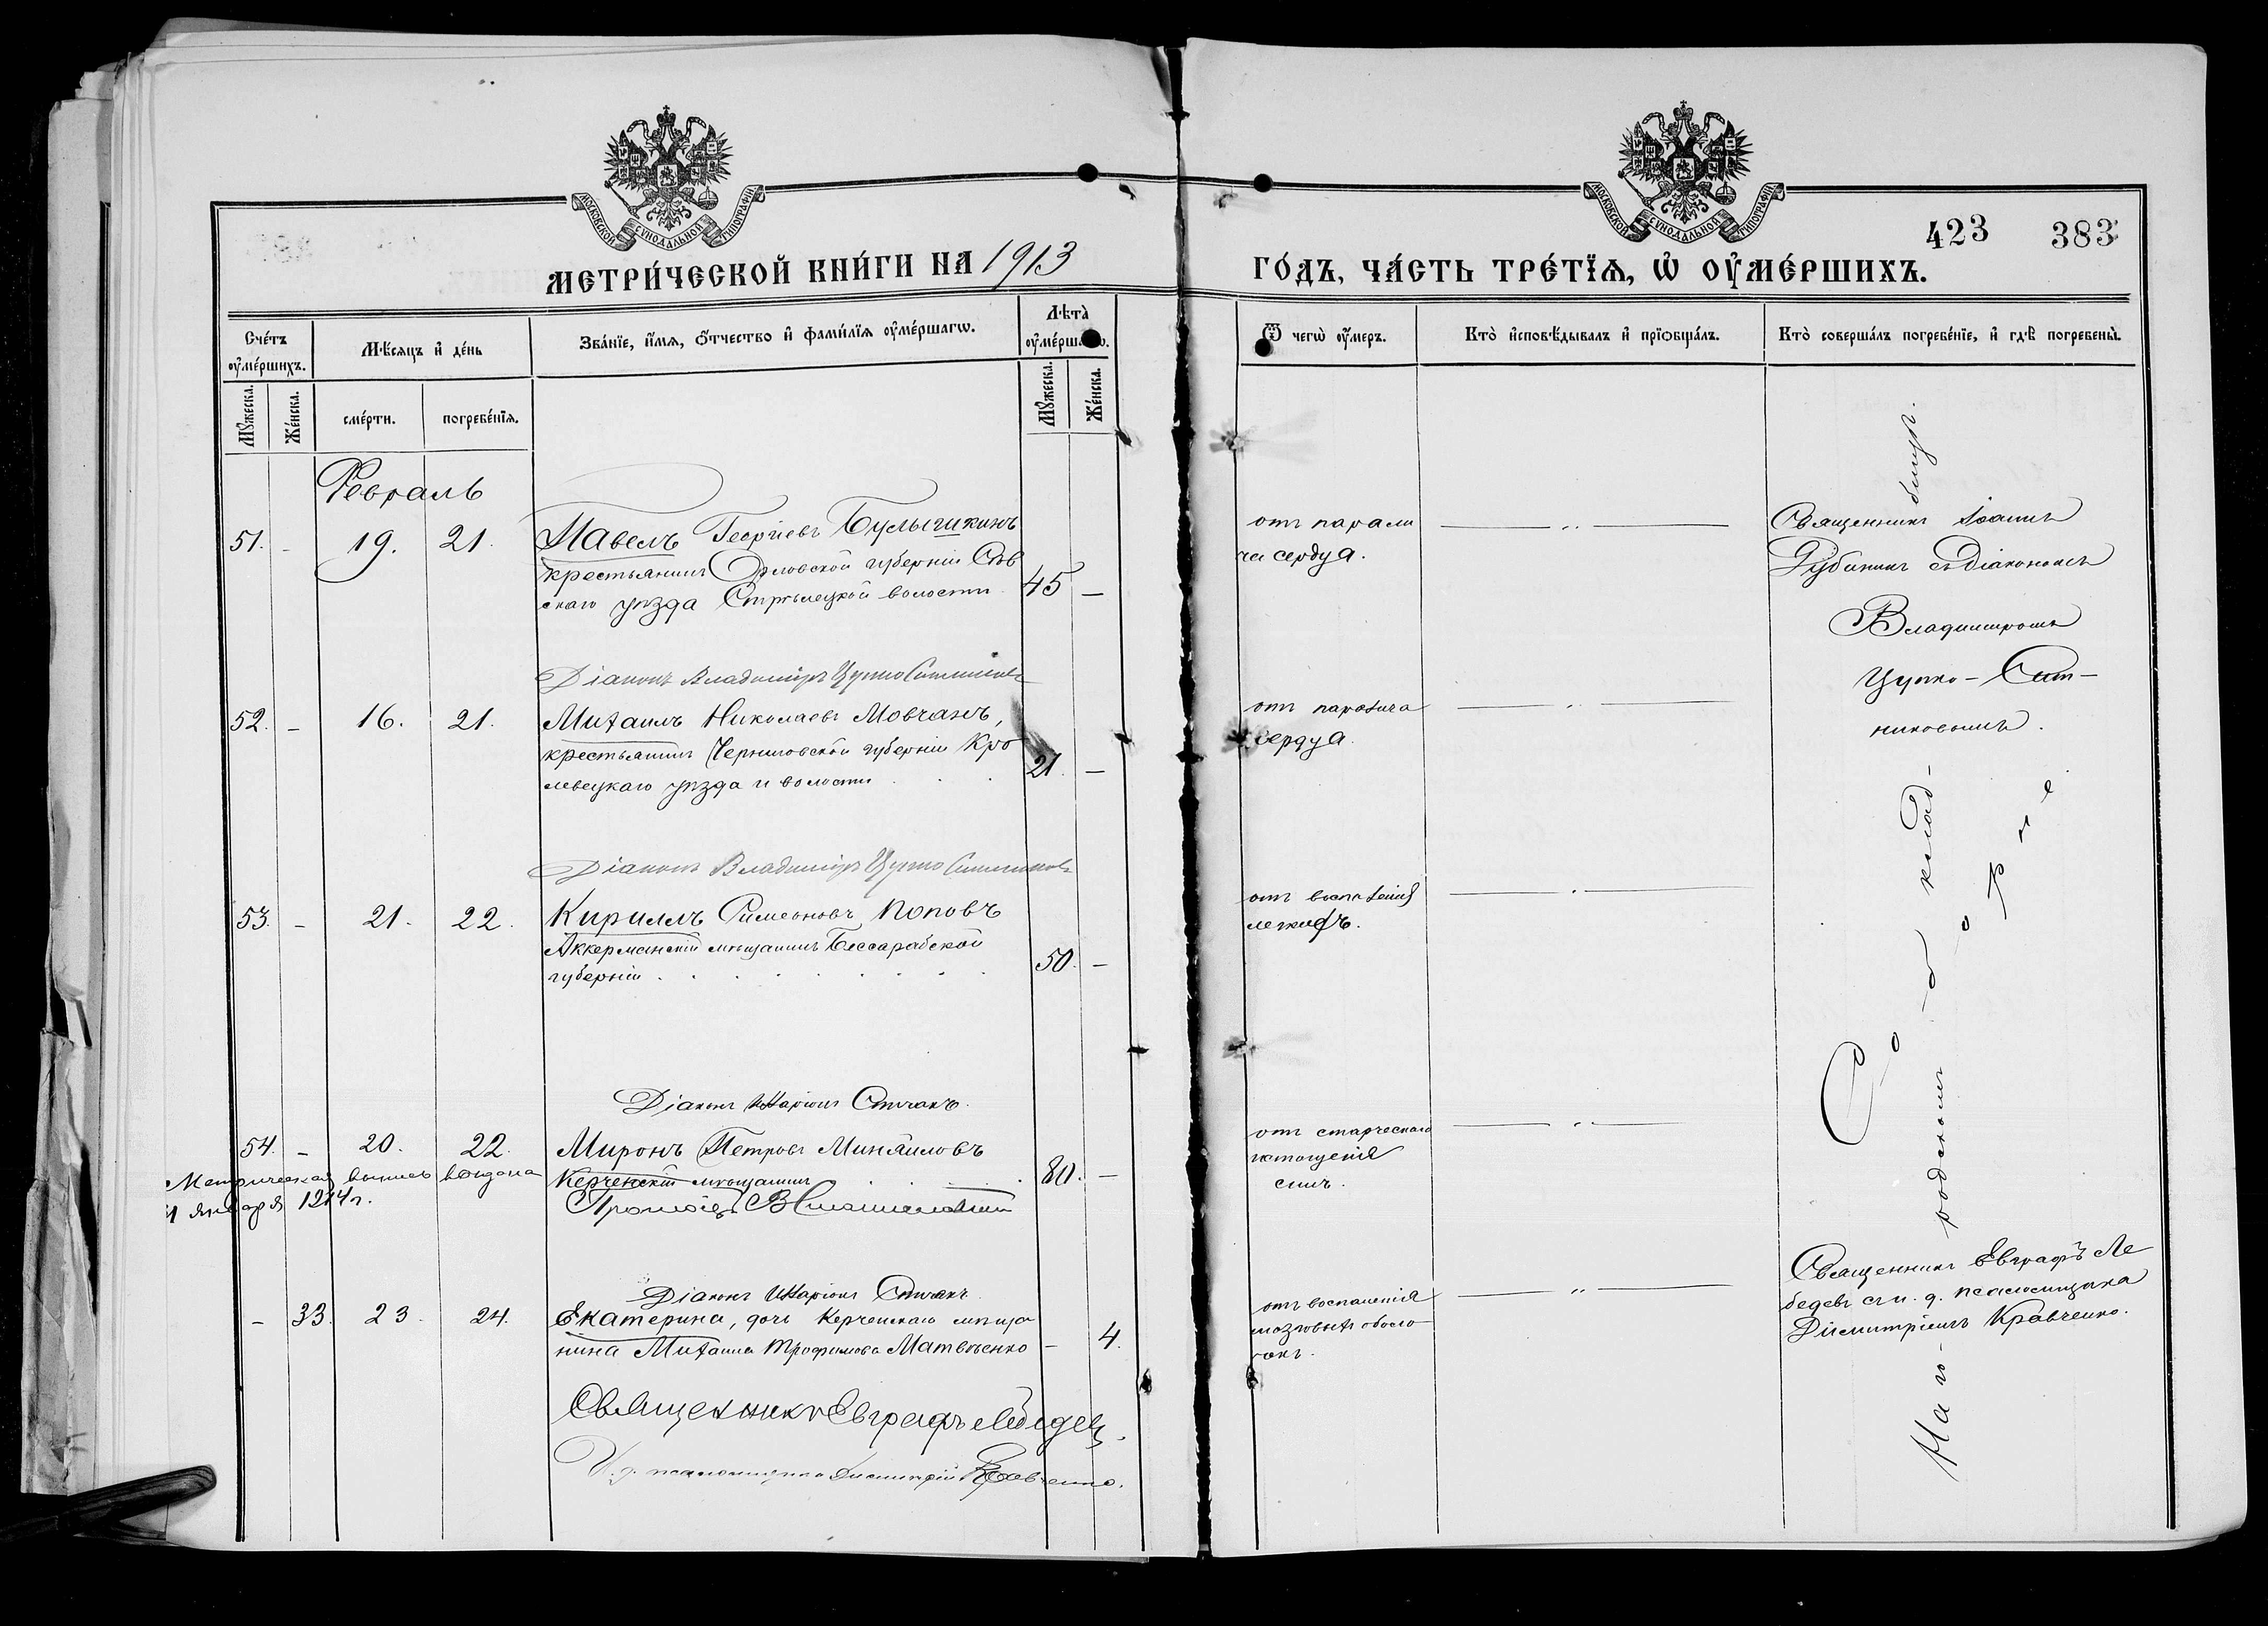 МОСКОВСКОЙ СУНОДАЛЬНОЙ ТИПОГРАФІИ
МОСКОВСКОЙ СУНОДАЛЬНОЙ ТИПОГРАФІИ
423 383
МЕТРИ́ЧЕСКОЙ КНИ́ГИ НА 1913
ГО́ДЪ, ЧА́СТЬ ТРЕ́ТЇѦ, Ѡ ОУМЕ́РШИХЪ.
Сче́тъ оуме́ршихъ.
Мѣ́сѧцъ и де́нь
Зва́нїе, и́мѧ, о́тчество и фами́лїѧ оуме́ршагѡ.
Лѣта̀ оуме́ршагѡ.
Ѿ чегѡ̀ оу́меръ.
Кто̀ исповѣ́дывалъ и прїѻбща́лъ.
Кто̀ соверша́лъ погребе́нїе, и гдѣ̀ погребены̀.
Мꙋ́жеска.
Же́нска.
сме́рти.
погребе́нїѧ.
Мꙋ́жеска.
Же́нска.
Февраль
51. - 19. 21. Павелъ Георгіевъ Булыгикинъ
крестьянинъ Орловской губерніи Сѣв
скаго уѣзда Стрѣлецкой волости 45 —
отъ парали
ча сердца.
Священникъ Іоаннъ
Рубинъ съ діакономъ
Владиміромъ
Цупко-Сит-
никовымъ.
Діаконъ Владиміръ Цупко Ситниковъ
52. - 16. 21. Михаилъ Николаевъ Мовчанъ,
крестьянинъ Черниговской губерніи Кро
левецкаго уѣзда и волости 21. —
отъ паралича
сердца.
Діаконъ Владиміръ Цупко Ситниковъ
53. - 21. 22. Кириллъ Симеоновъ Поповъ
Аккерманскій мѣщанинъ Бессарабской
губерніи 50. —
отъ воспаленія
легкихъ.
Діаконъ Иларіонъ Спичакъ.
54. - 20. 22. Миронъ Петровъ Минаиловъ
Керченскій мѣщанинъ 80. —
отъ старческаго
истощенія
силъ.
Метрическая выпись выдана
января 1914 г.
Діаконъ Иларіонъ Спичакъ
- 33. 23. 24. Екатерина, дочь Керченскаго мѣща
нина Михаила Трофимова Матвѣенко - 4.
отъ воспаленія
мозговыхъ оболо
чекъ.
Священникъ Евграфъ Ле
бедевъ съ и. д. псаломщика
Димитріемъ Кравченко.
Священникъ Евграфъ Лебедевъ.
И. д. псаломщика Димитрій Кравченко.
На го-
родскомъ
клад-
бищѣ.